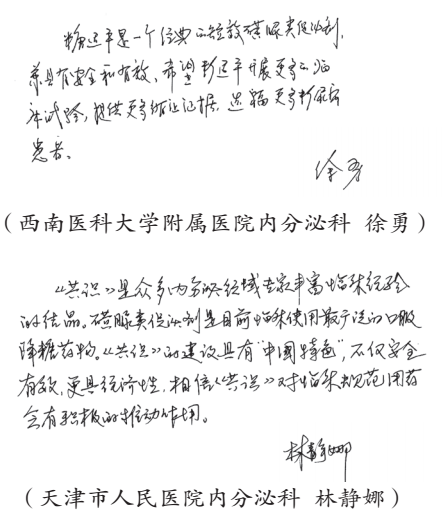 糖适平是一个经典的短效磺脲类促泌剂,
兼具有安全和有效。希望糖适平开展更多的临
床试验,提供更多循证证据,造福更多糖尿病
患者。
徐勇
(西南医科大学附属医院内分泌科 徐勇)
《共识》是众多内分泌领域专家丰富临床经验
的结晶。磺脲类促泌剂是目前临床使用最广泛的口服
降糖药物。《共识》的建议具有“中国特色”,不仅安全
有效,更具经济性,相信《共识》对临床规范用药
会有积极的推动作用。
林静娜
(天津市人民医院内分泌科 林静娜)